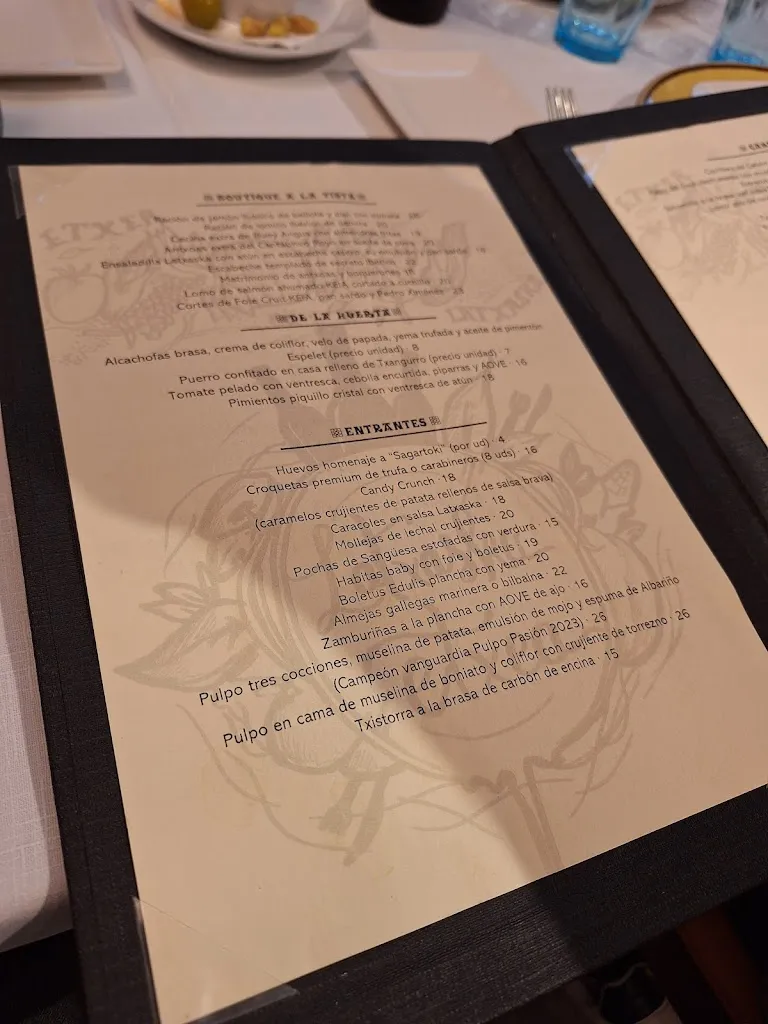 BOUTIQUE A LA VISTA
Ración de jamón ibérico de bellota y pan con tomate
Ración de lomo ibérico de bellota 20
Cecina extra de Buey Angus con almendras fritas 18
Anchoas extra del Cantábrico en aceite de oliva 20
Ensaladilla Latxaska con atún en escabeche casero, su emulsión y pan sardo 16
Escabeche templado de secreto ibérico 22
Matrimonio de anchoas y boquerones 18
Lomo de salmón ahumado KEIA cortado a cuchillo 20
Cortes de Foie Crud KEIA, pan sardo y Pedro Ximénez 23
DE LA HUERTA
Alcachofas brasa, crema de coliflor, velo de papada, yema trufada y aceite de pimentón
Espelet (precio unidad) · 8
Puerro confitado en casa relleno de Txangurro (precio unidad) · 7
Tomate pelado con ventresca, cebolla encurtida, piparras y AOVE · 16
Pimientos piquillo cristal con ventresca de atún · 18
ENTRANTES
Huevos homenaje a "Sagartoki" (por ud) · 4
Croquetas premium de trufa o carabineros (8 uds) · 16
Candy Crunch · 18
(caramelos crujientes de patata rellenos de salsa brava)
Caracoles en salsa Latxaska · 18
Mollejas de lechal crujientes · 20
Pochas de Sangüesa estofadas con verdura · 15
Habitas baby con foie y boletus · 19
Boletus Edulis plancha con yema · 20
Almejas gallegas marinera o bilbaina · 22
Zamburiñas a la plancha con AOVE de ajo · 16
Pulpo tres cocciones, muselina de patata, emulsión de mojo y espuma de Albariño
(Campeón vanguardia Pulpo Pasión 2023) · 26
Pulpo en cama de muselina de boniato y coliflor con crujiente de torrezno · 26
Txistorra a la brasa de carbón de encina · 15